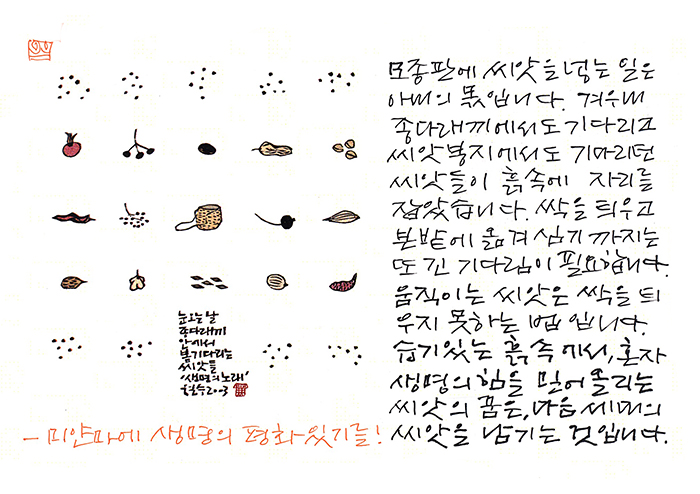 모종판에 씨앗을 넣는 일은
아내의 몫입니다. 겨우내
종다래끼에서도 기다리고
씨앗봉지에서도 기다리던
씨앗들이 흙속에 자리를
잡았습니다. 싹을 틔우고
본밭에 옮겨 심기 까지는
또 긴 기다림이 필요합니다.
움직이는 씨앗은 싹을 틔
우지 못하는 법입니다.
습기있는 흙 속에서, 혼자
생명의 힘을 밀어 올리는
씨앗의 꿈은, 다음 세대의
씨앗을 남기는 것입니다.
눈오는 날
종다래끼
안에서
봄기다리는
씨앗들
'생명의 노래'
철수2003
– 미얀마에 생명의 평화있기를!